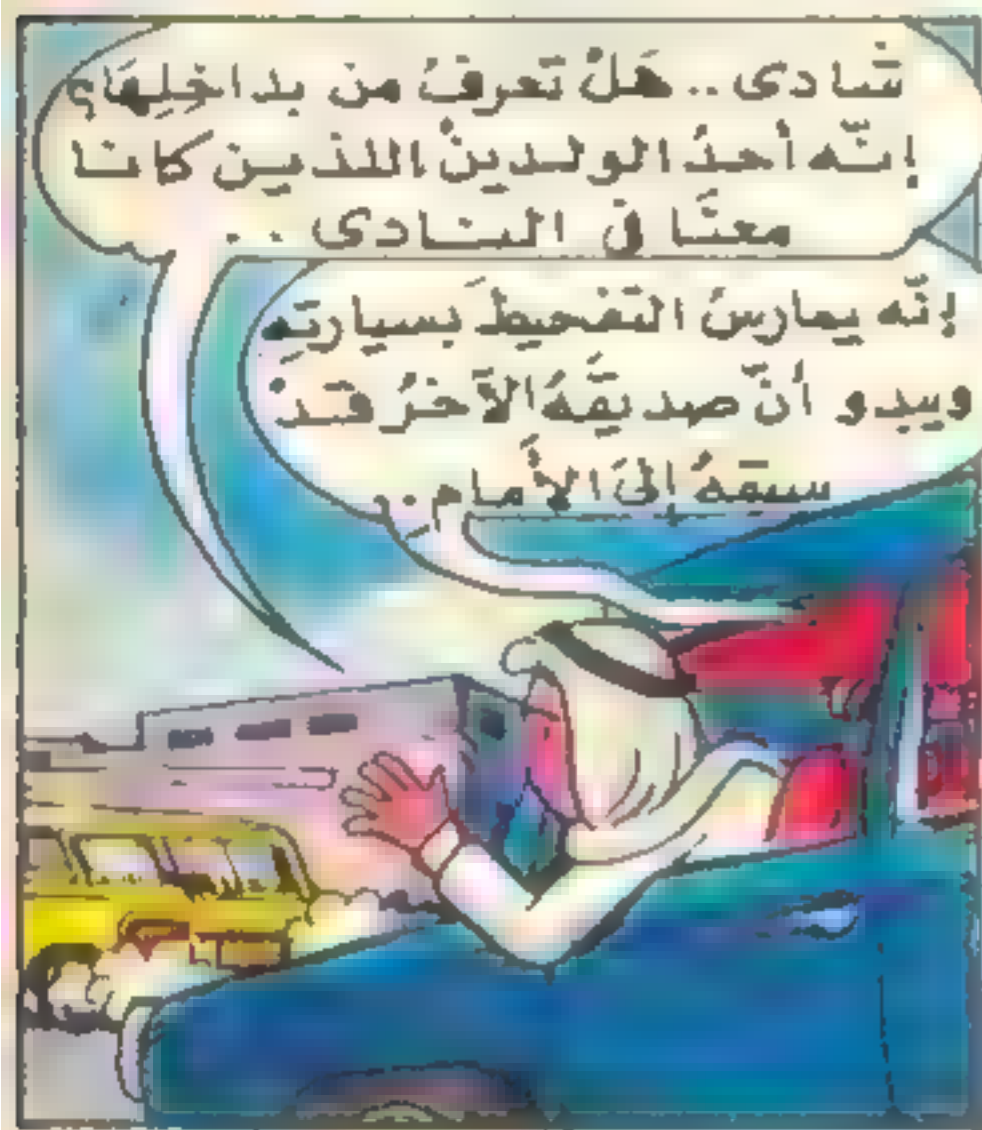 شادى .. هَلْ تَعرفُ من بداخِلِهَا؟
إنّه أحدُ الولدينْ اللذين كانا
معنَا فى النادى ..
إنّه يمارسُ التفحيطَ بسيارتِه
ويبدو أنّ صديقَهُ الآخرُ قدْ
سبقهُ إلىَ الأَمام ..